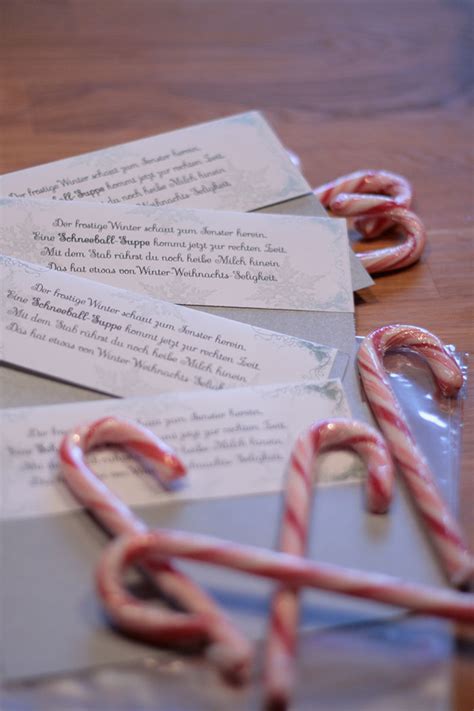 Der frostige Winter schaut zum Fenster herein,
Eine Schneeball-Suppe kommt jetzt zur rechten Zeit.
Mit dem Stab rührst du noch heiße Milch hinein
Das hat etwas von Winter-Weihnachts-Seligkeit.
Der frostige Winter schaut zum Fenster herein,
Eine Schneeball-Suppe kommt jetzt zur rechten Zeit.
Mit dem Stab rührst du noch heiße Milch hinein
Das hat etwas von Winter-Weihnachts-Seligkeit.
Der frostige Winter schaut zum Fenster herein,
Eine Schneeball-Suppe kommt jetzt zur rechten Zeit.
Mit dem Stab rührst du noch heiße Milch hinein
Das hat etwas von Winter-Weihnachts-Seligkeit.
Der frostige Winter schaut zum Fenster herein,
Eine Schneeball-Suppe kommt jetzt zur rechten Zeit.
Mit dem Stab rührst du noch heiße Milch hinein
Das hat etwas von Winter-Weihnachts-Seligkeit.